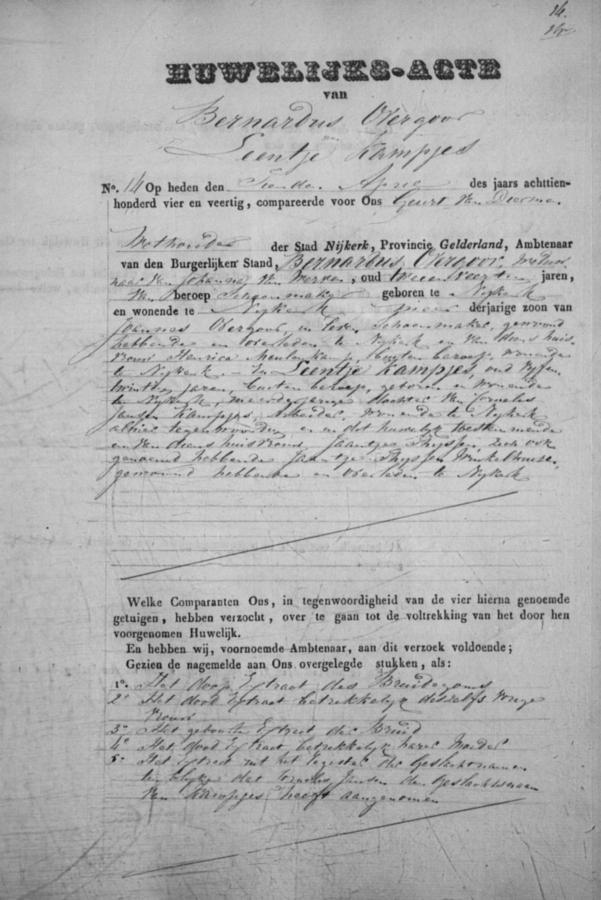 14.
HUWELIJKS-ACTE
van
Bernardus Overgoor
en
Leentje Kampjes
No. 14 Op heden den April des jaars achttien-
honderd vier en veertig, compareerde voor Ons Geurt van Diermen
Wethouder der Stad Nijkerk, Provincie Gelderland, Ambtenaar
van den Burgerlijken Stand, Bernardus Overgoor, weduw-
naar van Johanna van oud twee en veertig jaren,
van beroep Schoenmaker geboren te Nijkerk
en wonende te Nijkerk meer derjarige zoon van
Joannes Overgoor, in leven Schoenmaker, gewoond
hebbende en overleden te Nijkerk en van deszelfs huis-
vrouw Henrica Meulenkamp, buiten beroep, wonende
te Nijkerk — En Leentje Kampjes, oud vijfen
twintig jaren, buiten beroep, geboren en wonende
te Nijkerk, meerderjarige dochter van Cornelis
Jansen Kampjes, Arbeider, wonende te Nijkerk
alhier tegenwoordig en in dit huwelijk toestemmende
en van deszelfs huisvrouw Jaantje Thijssen, zich ook
genoemd hebbende Jaantje Thijssen
gewoond hebbende en overleden te Nijkerk
Welke Comparanten Ons, in tegenwoordigheid van de vier hierna genoemde
getuigen, hebben verzocht, over te gaan tot de voltrekking van het door hen
voorgenomen Huwelijk.
En hebben wij, voornoemde Ambtenaar, aan dit verzoek voldoende;
Gezien de nagemelde aan Ons overgelegde stukken, als:
1o. Het doop Extract des Bruidegoms
2o Het dood Extract betrekkelijk deszelfs vorige
Vrouw
3o Het geboorte Extract der Bruid
4o Het dood Extract, betrekkelijk hare Moeder
5o Het Extract uit het Register der Geslachtsnamen
ten blijke dat Cornelis Jansen den Geslachtsnaam
van Kampjes heeft aangenomen